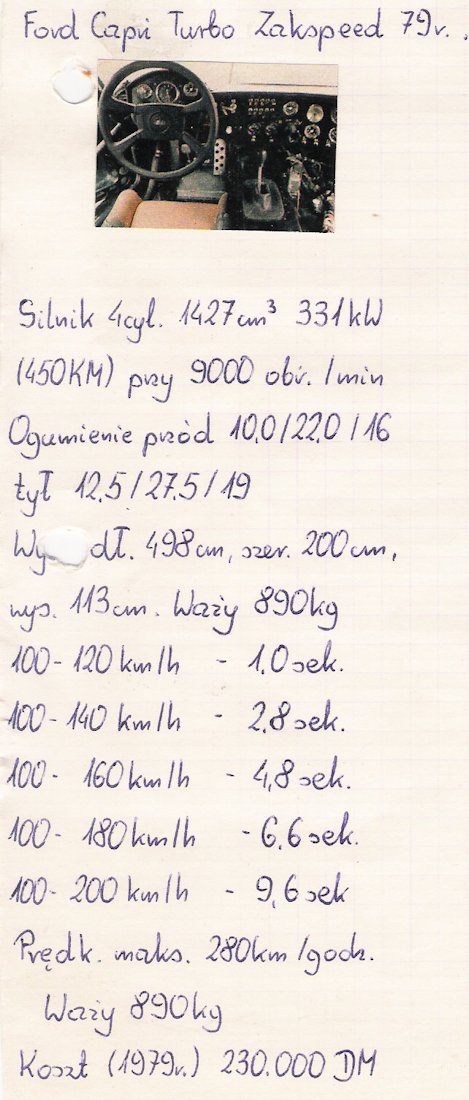 Ford Capri Turbo Zakspeed 79r.
Silnik 4cyl. 1427cm³ 331kW
(450KM) przy 9000 obr. /min
Ogumienie przód 10,0/22,0/16
tył 12,5/27,5/19
dł. 498cm, szer. 200cm,
wys. 113cm. Waży 890kg
100-120 km/h - 1,0sek.
100-140 km/h - 2,8sek.
100- 160km/h - 4,8sek.
100- 180km/h - 6,6sek.
100- 200km/h - 9,6sek
Prędk. maks. 280km/godz.
Waży 890kg
Koszt (1979r.) 230.000 DM